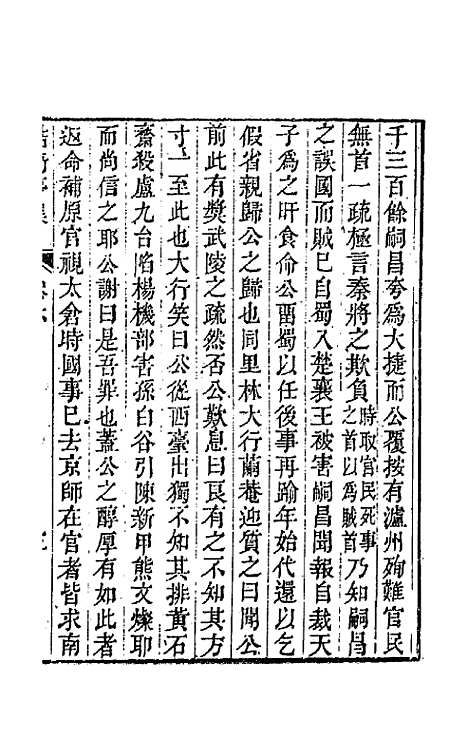 千三百餘嗣昌夸爲大捷而公覆按有瀘州殉難官民
無首一疏極言秦將之欺負時取官民死事之首以爲賊首乃知嗣昌
之誤國而賊已自蜀入楚襄王被害嗣昌聞報自裁天
子爲之旰食命公畱蜀以任後事再踰年始代還以乞
假省親歸公之歸也同里林大行蕳菴迎質之曰聞公
前此有奬武陵之疏然否公歎息曰良有之不知其方
寸一至此也大行笑曰公從西臺出獨不知其排黃石
齋殺盧九台陷楊機部害孫白谷引陳新甲熊文燦耶
而尚信之耶公謝曰是吾罪也蓋公之醇厚有如此者
返命補原官視太倉時國事已去京師在官者皆求南
鮚埼亭集